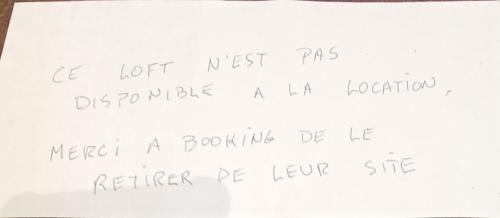 CE LOFT N'EST PAS
DISPONIBLE A LA LOCATION,
MERCI A BOOKING DE LE
RETIRER DE LEUR SITE